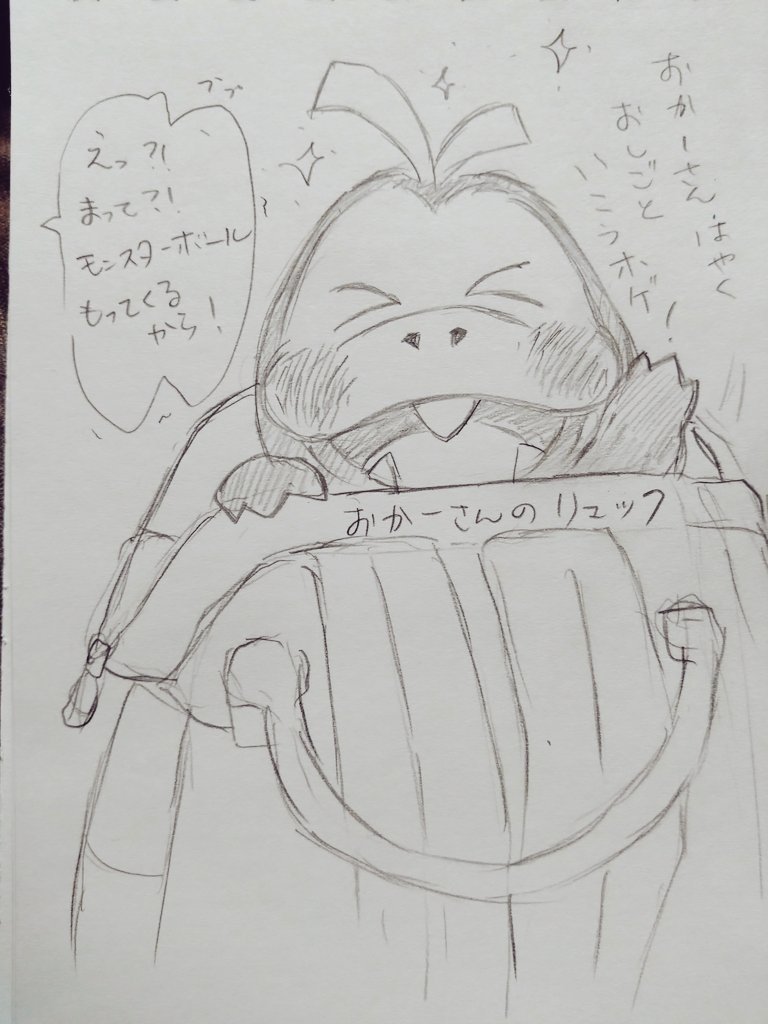 おかーさんはやく
おしごと
いこうホゲ!
えっ?!
まって?!
モンスターボール
もってくる
から!
おかーさんのリュック